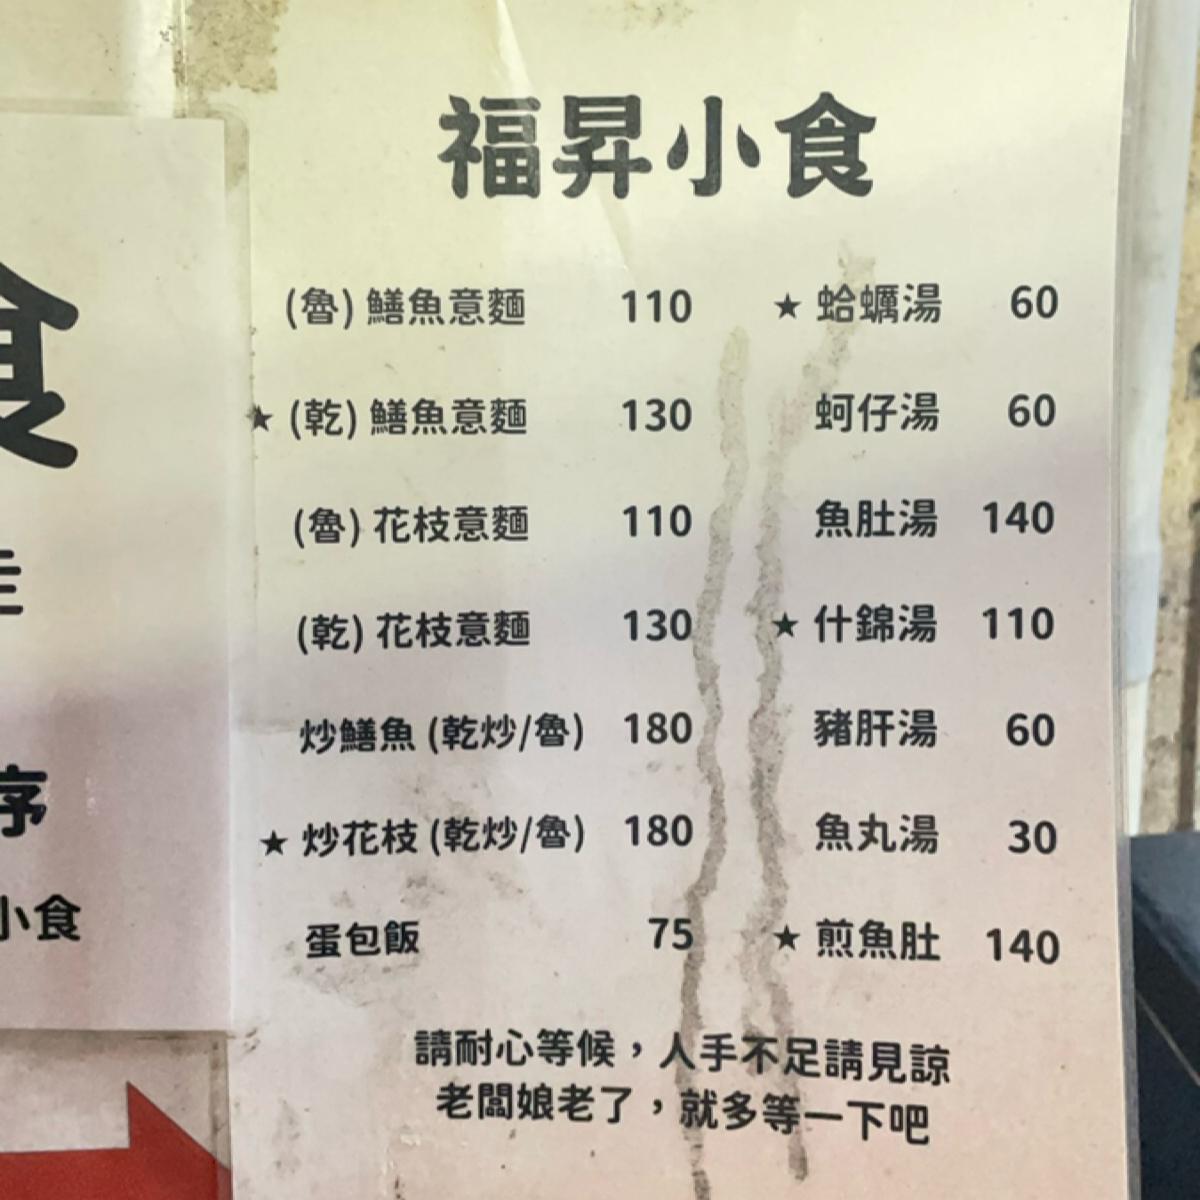 福昇小食
(魯) 鱔魚意麵 110
★ (乾) 鱔魚意麵 130
(魯) 花枝意麵 110
(乾) 花枝意麵 130
炒鱔魚 (乾炒/魯) 180
★ 炒花枝 (乾炒/魯) 180
蛋包飯 75
★ 蛤蠣湯 60
蚵仔湯 60
魚肚湯 140
★ 什錦湯 110
豬肝湯 60
魚丸湯 30
★ 煎魚肚 140
請耐心等候，人手不足請見諒
老闆娘老了，就多等一下吧
食
序
小食